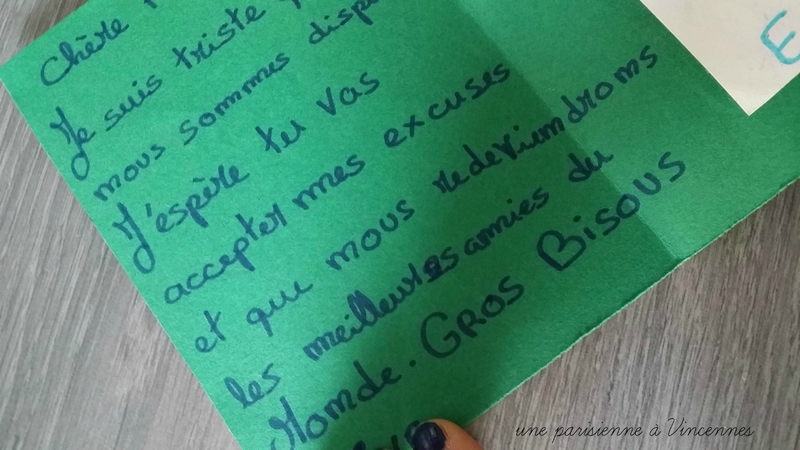 Chère
Je suis triste
nous sommes
J'espère tu vas
accepter mes excuses
et que nous redeviendrons
les meilleures amies du
Monde. GROS BISOUS
E
une parisienne à Vincennes